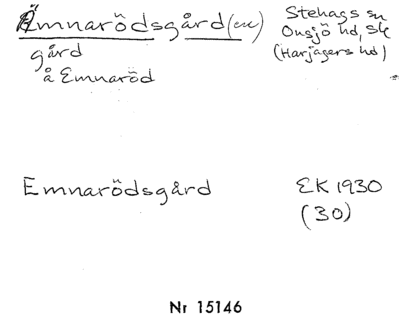 Emnarödsgård (ene)
Stehags sn
Onsjö hd, Sk
(Harjagers hd)
gård
å Emnaröd
Emnarödsgård
EK 1930
(30)
Nr 15146